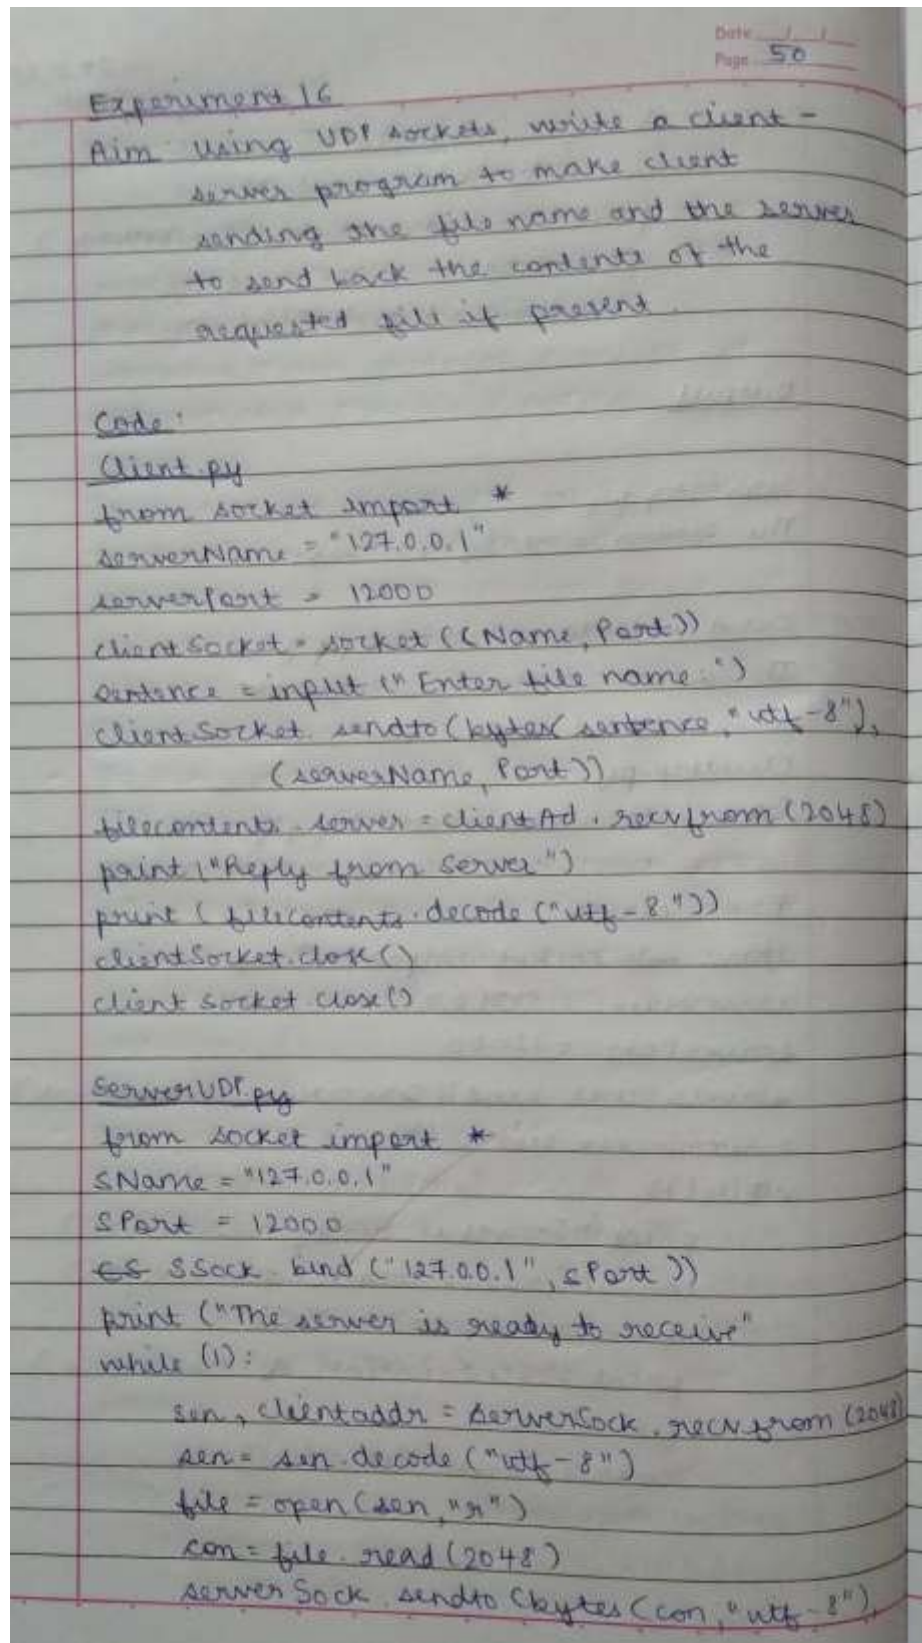 Date / /
Page 50
Experiment 16
Aim Using UDP sockets, write a client -
server program to make client
sending the file name and the server
to send back the contents of the
requested file if present.
Code :
Client.py
from socket import *
serverName = "127.0.0.1"
serverPort = 12000
clientSocket = socket ((Name, Port))
sentence = input (" Enter file name : ")
clientSocket. sendto (bytes( sentence, "utf-8"),
(serverName, Port))
filecontents, server = clientAd . recvfrom (2048)
print ("Reply from Server")
print ( filecontents. decode ("utf-8"))
clientSocket.close()
client socket close()
ServerUDP.py
from socket import *
SName = "127.0.0.1"
SPort = 12000
SSock bind ("127.0.0.1", sPort ))
print ("The server is ready to receive"
while (1) :
sen, clientaddr = serverSock . recv from (2048)
sen = sen . decode ("utf-8")
file = open (sen, "r")
con = file . read (2048)
serverSock . sendto (bytes (con, "utf-8"),